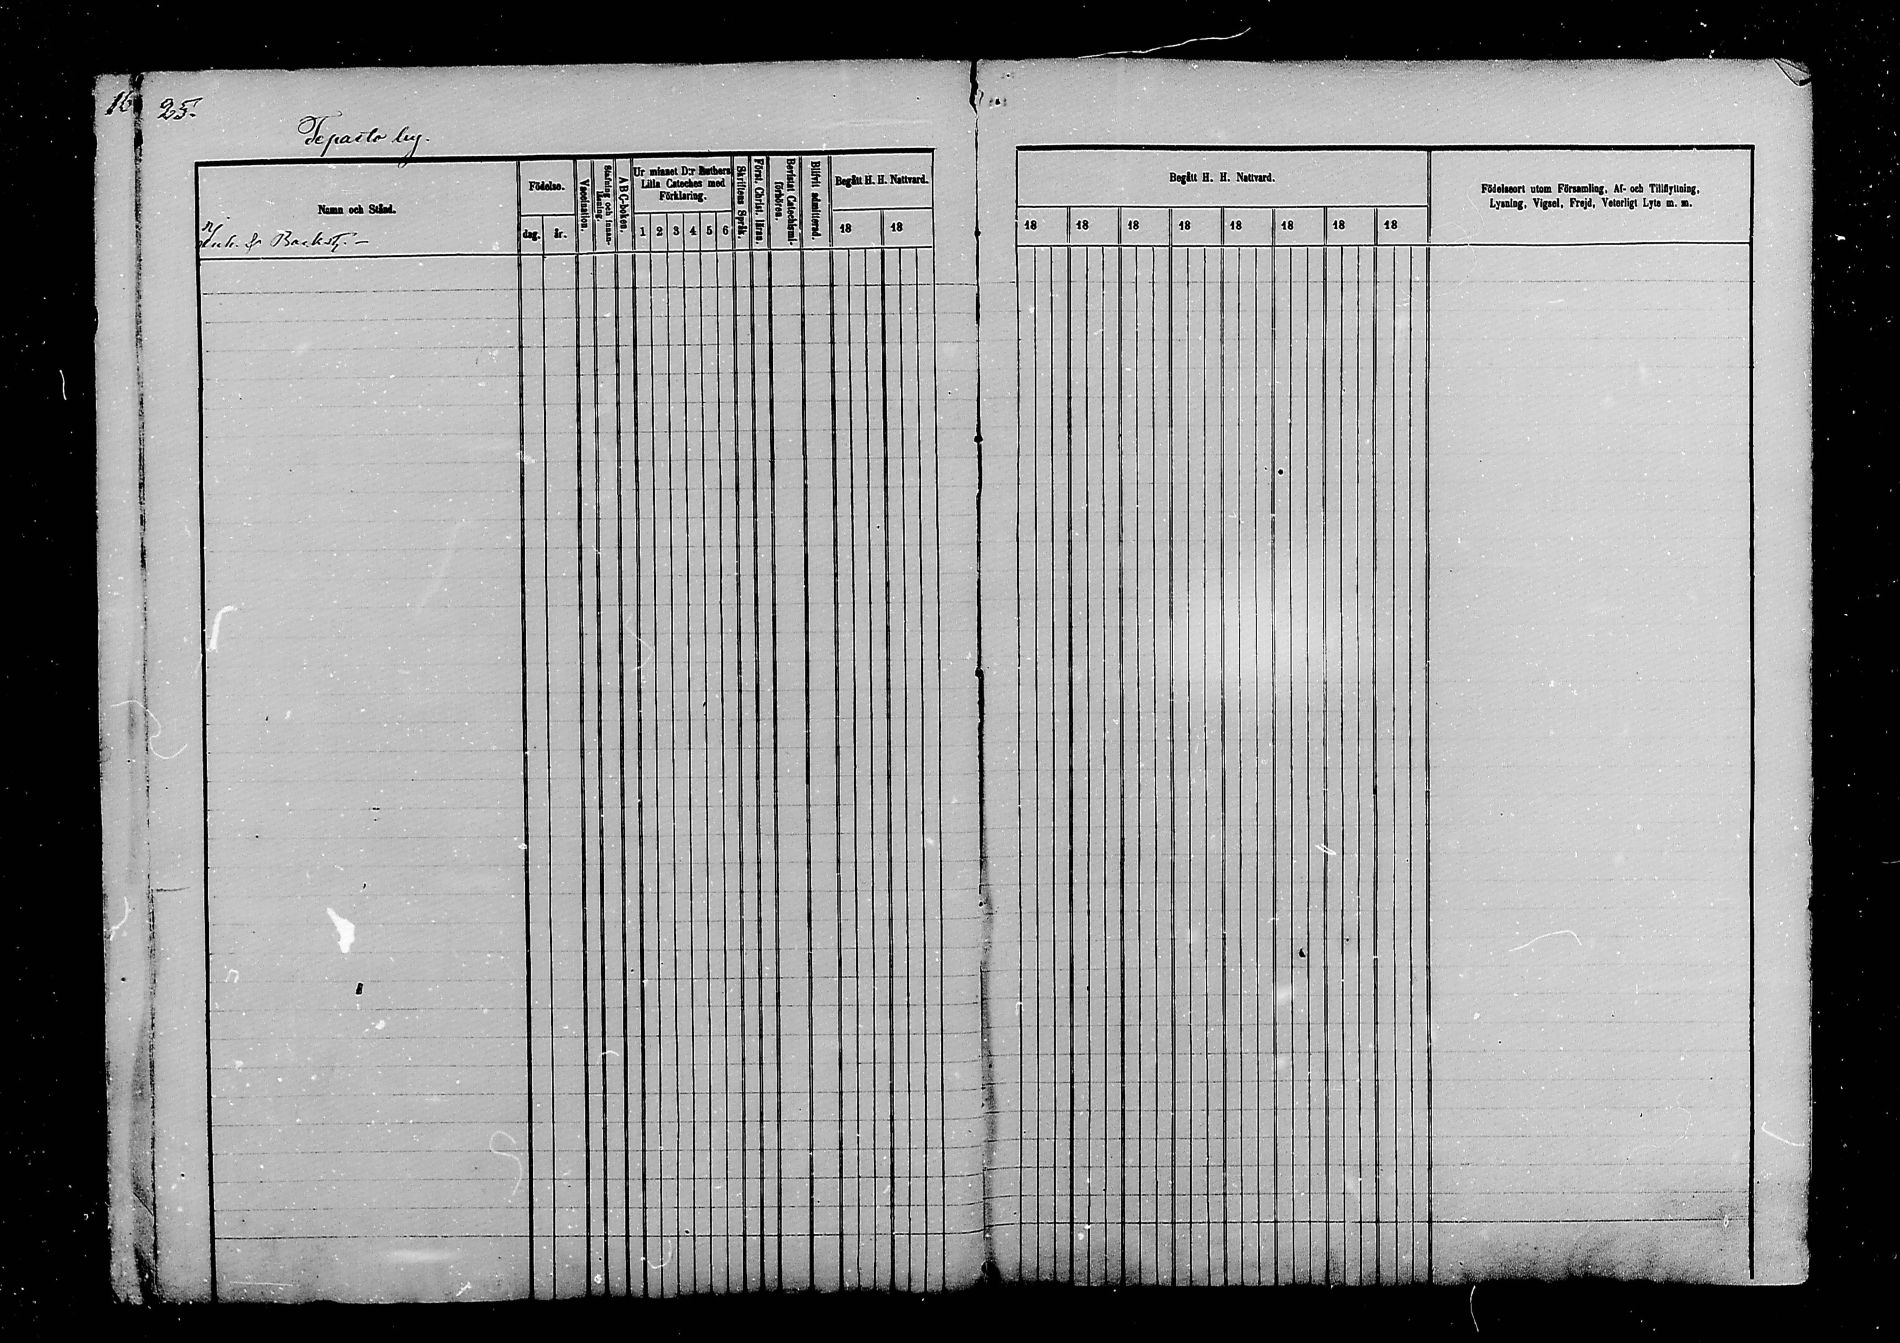 16 25.
Tepasto by.
Namn och Stånd.
Enk. & Backst. —
Födelse.
dag. år.
Vaccination.
Stafning och innan-
läsning.
A B C-boken.
Ur minnet D:r Luthers
Lilla Cateches med
Förklaring.
1 2 3 4 5 6
Skriftens Språk.
Först. Christ. läran.
Bevistat Catechismi-
förhören.
Blifvit admitterad.
Begått H. H. Nattvard.
18 18
Begått H. H. Nattvard.
18 18 18 18 18 18 18 18
Födelseort utom Församling, Af- och Tillflyttning,
Lysning, Vigsel, Frejd, Veterligt Lyte m. m.